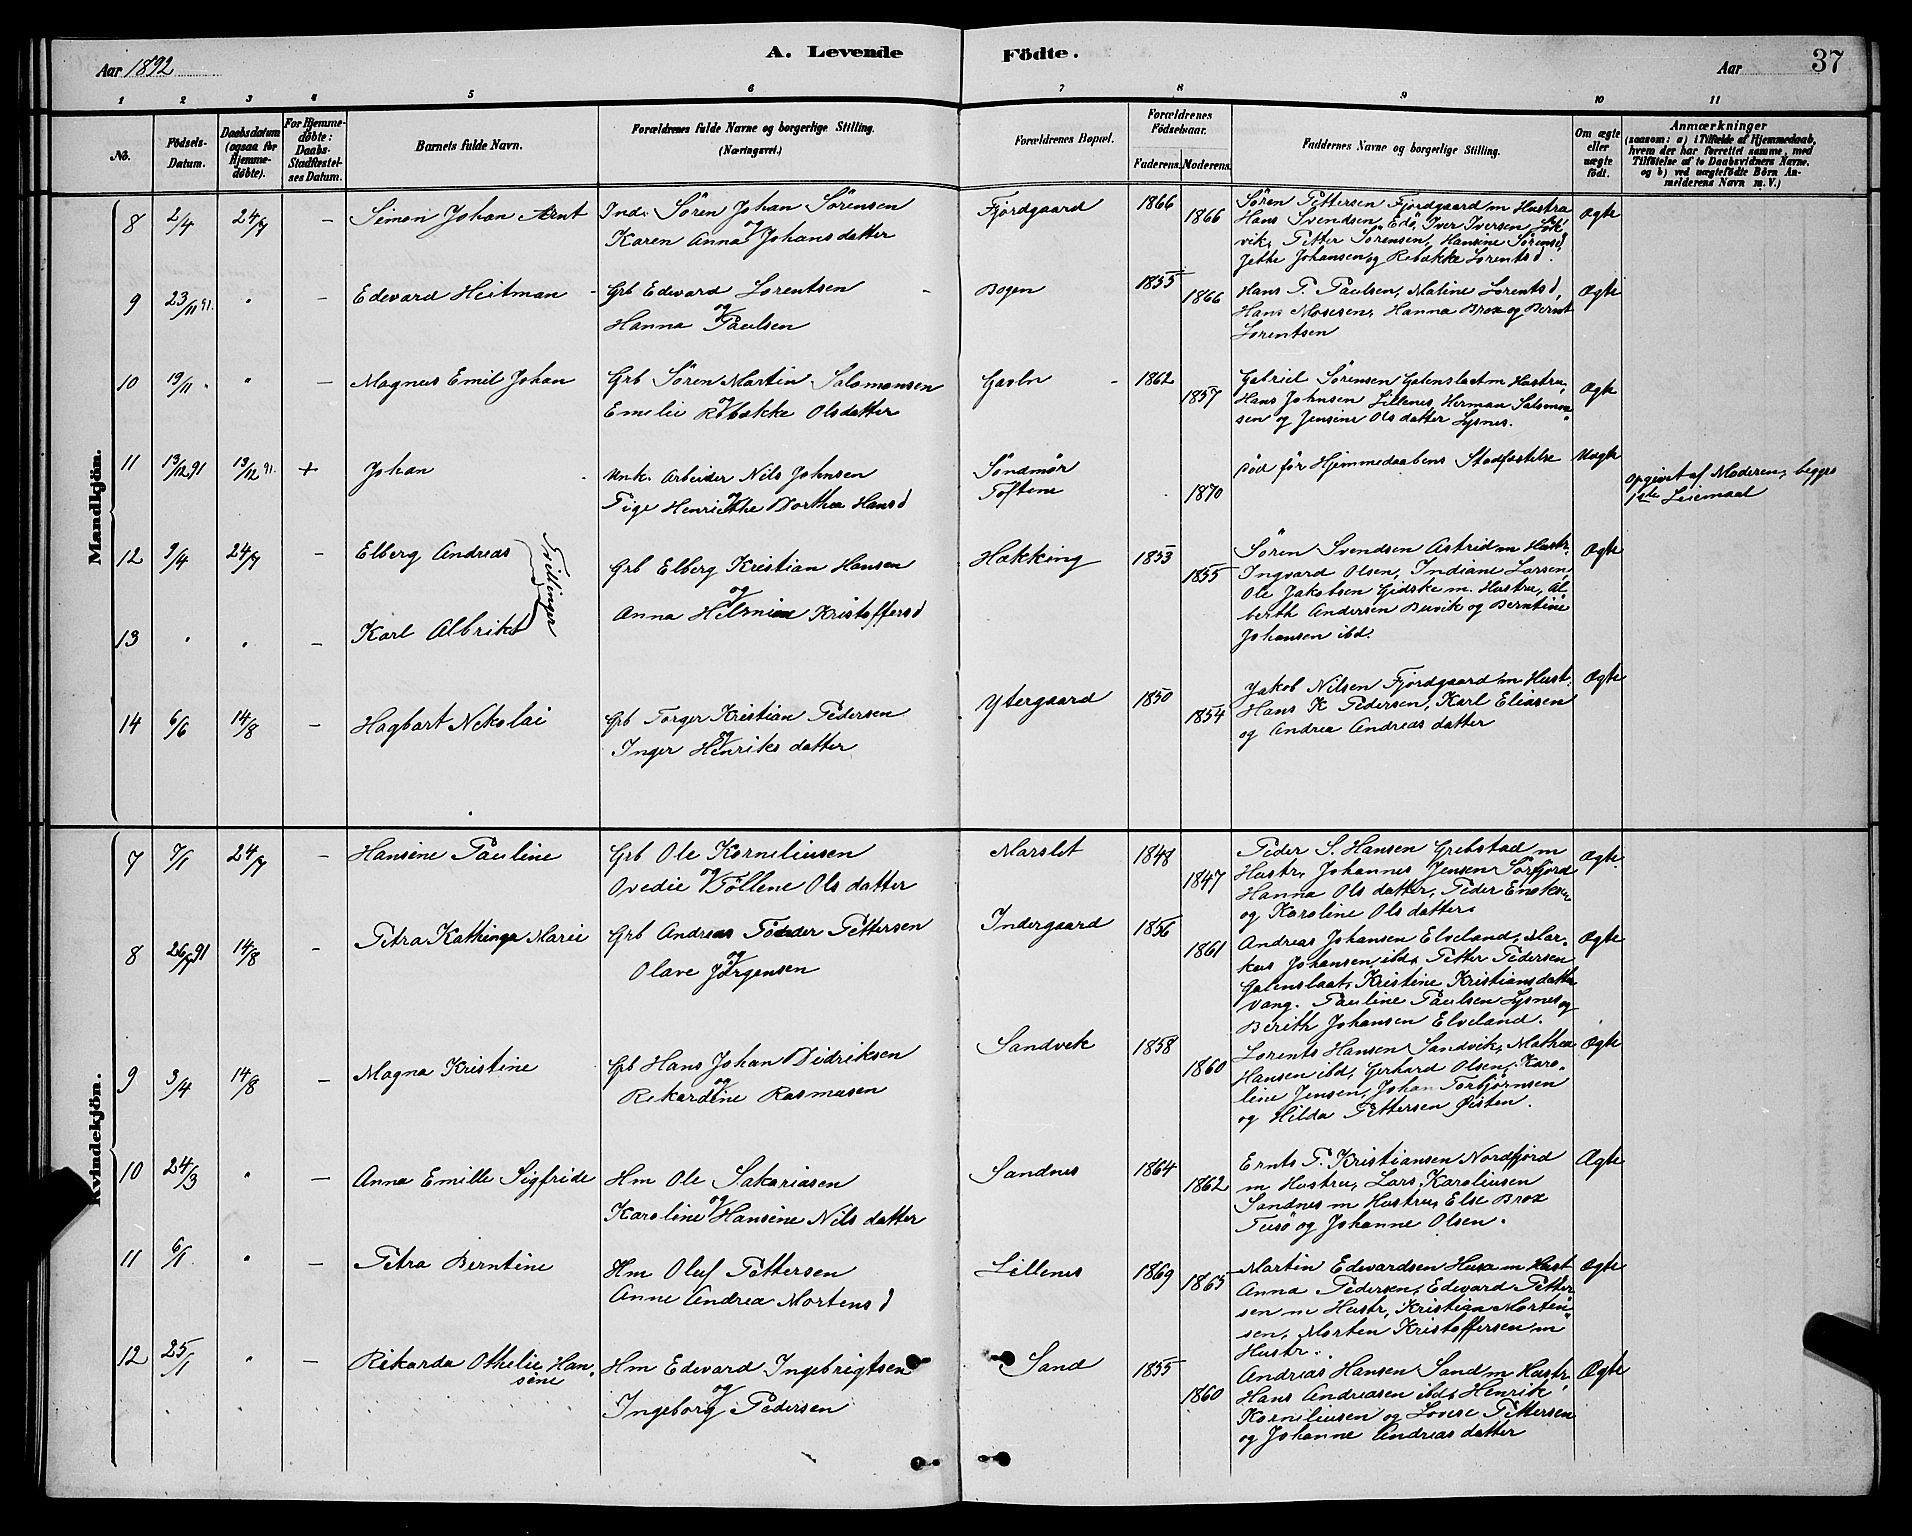 Aar 1892
A. Levende Födte.
Aar
37
1 2 3 4 5 6 7 8 9 10 11
No.
Födsels-Datum.
Daabsdatum (ogsaa for Hjemme-döbte).
For Hjemme-döbte: Daabs-Stadfæstel-ses Datum.
Barnets fulde Navn.
Forældrenes fulde Navne og borgerlige Stilling.
(Næringsvei.)
Forældrenes Bopæl.
Forældrenes Födselsaar.
Faderens. Moderens.
Faddernes Navne og borgerlige Stilling.
Om ægte eller uægte födt.
Anmærkninger
(saasom: a) i Tilfælde af Hjemmedaab,
hvem der har forrettet samme, med
Tilföielse af to Daabsvidners Navne.
og b) ved uægtefödte Börn An-
melderens Navn m. V.)
Mandkjön.
8 2/4 24/7 – Simon Johan Arnt
Ind. Sören Johan Sörensen
og
Karen Anna Johansdatter
Fjordgaard 1866 1866
Sören Pettersen Fjordgaard m Hustru
Hans Svendsen, Edö, Iver Iversen
vik, Petter Sörensen, Hansine Sörensd,
Jette Johansen og Rebekke Lorentsd.
Ægte
9 23/11 91. " – Edevard Heitman
Grb Edevard Lorentsen
og
Hanna Paulsen
Bogen 1855 1866
Hans P. Paulsen, Maline Lorentsd,
Hans Mosesen, Hanna Brox og Bernt
Lorentsen
Ægte
10 19/11 " " – Magnus Emil Johan
Grb Sören Martin Salomonsen
og
Emelie Rebekke Olsdatter
1862 1857
Gabriel Sörensen Galenslaat m Hustru,
Hans Johnsen Lillenes, Herman Salomon
sen og Jensine Olsdatter Lysnes.
Ægte
11 19/12 91 19/12 91. + Johan
Unk. Arbeider Nils Johnsen
og
Pige Henriette Dorthea Hansd
Söndmör
Toftene
1870
Död för Hjemmedaabens Stadfæstelse
Uægte
Opgivet af Moderen, begges
1ste Leiermaal
12 9/4 24/7 – Elberg Andreas
Tvillinger
Grb Elberg Kristian Hansen
og
Anna Kristoffersd
Hækking 1853 1855
Sören Svendsen Astrid m Hustr.
Ingvard Olsen, Indiane Larsen,
Ole Jakobsen Gidske m. Hustru, Al
berth Andersen Buvik og Berntine
Johansen ibd.
Ægte
13 " " – Karl Albrikt
14 6/6 14/8 – Hagbart Nekolai
Grb Torger Kristian Pedersen
og
Inger Henriksdatter
Ytergaard 1850 1854
Jakob Nilsen Fjordgaard m Hust.
Hans K Pedersen, Karl Eliasen
og Andrea Andreasdatter
Ægte
Kvindekjön.
7 7/1 24/7 – Hansine Pauline
Grb Ole Korneliusen
og
Ovedie Töllene Olsdatter
Marslet 1848 1847
Peder S. Hansen Grebstad m
Hustr, Johannes Jensen Sörfjord
Hanna Olsdatter, Peder
og Karoline Olsdatter.
Ægte
8 91 14/8 – Petra Kathinga Marie
Grb Andreas Pettersen
og
Olave Jörgensen
Indergaard 1856 1861
Andreas Johansen Elveland, Mar-
kus Johansen ibd, Petter Pedersen
Galenslaat, Kristine Kristiansdatter
Vang. Pauline Paulsen Lysnes og
Berith Johansen Elveland.
Ægte
9 3/4 14/8 – Magna Kristine
Grb Hans Johan Didriksen
og
Rikardine Rasmusen
Sandvik 1858 1860
Lorents Hansen Sandvik, Mathea
Hansen ibd, Gerhard Olsen, Karo-
line Jensen, Johan Torbjörnsen
og Hilda Pettersen Øisten.
Ægte
10 24/3 " – Anna Emille Sigfride
Hm Ole Sakariasen
og
Karoline Hansine Nilsdatter
Sandnes 1864 1862
Ernts P. Kristiansen Nordfjord
m Hustru, Lars Karoliusen
Sandnes m Hustru, Else Brox
Tusö og Johanne Olsen.
Ægte
11 6/1 " – Petra Berntine
Hm Oluf Pettersen
Anne Andrea Mortensd
Lillenes 1869 1865
Martin Edevardsen Husa m Hust
Anna Pedersen, Edevard Petter
sen m Hustr, Kristian Morten
sen, Morten Kristoffersen m
Hustr.
Ægte
12 25/1 " – Rikarda Othelie Han-
sine
Hm Edevard Ingebrigtsen
og
Ingeborg Pedersen
Sand 1855 1860
Andreas Hansen Sand m Hustr,
Hans Andreasen ibd, Henrik
Korneliusen og Lovise Pettersen
og Johanne Andreasdatter
Ægte